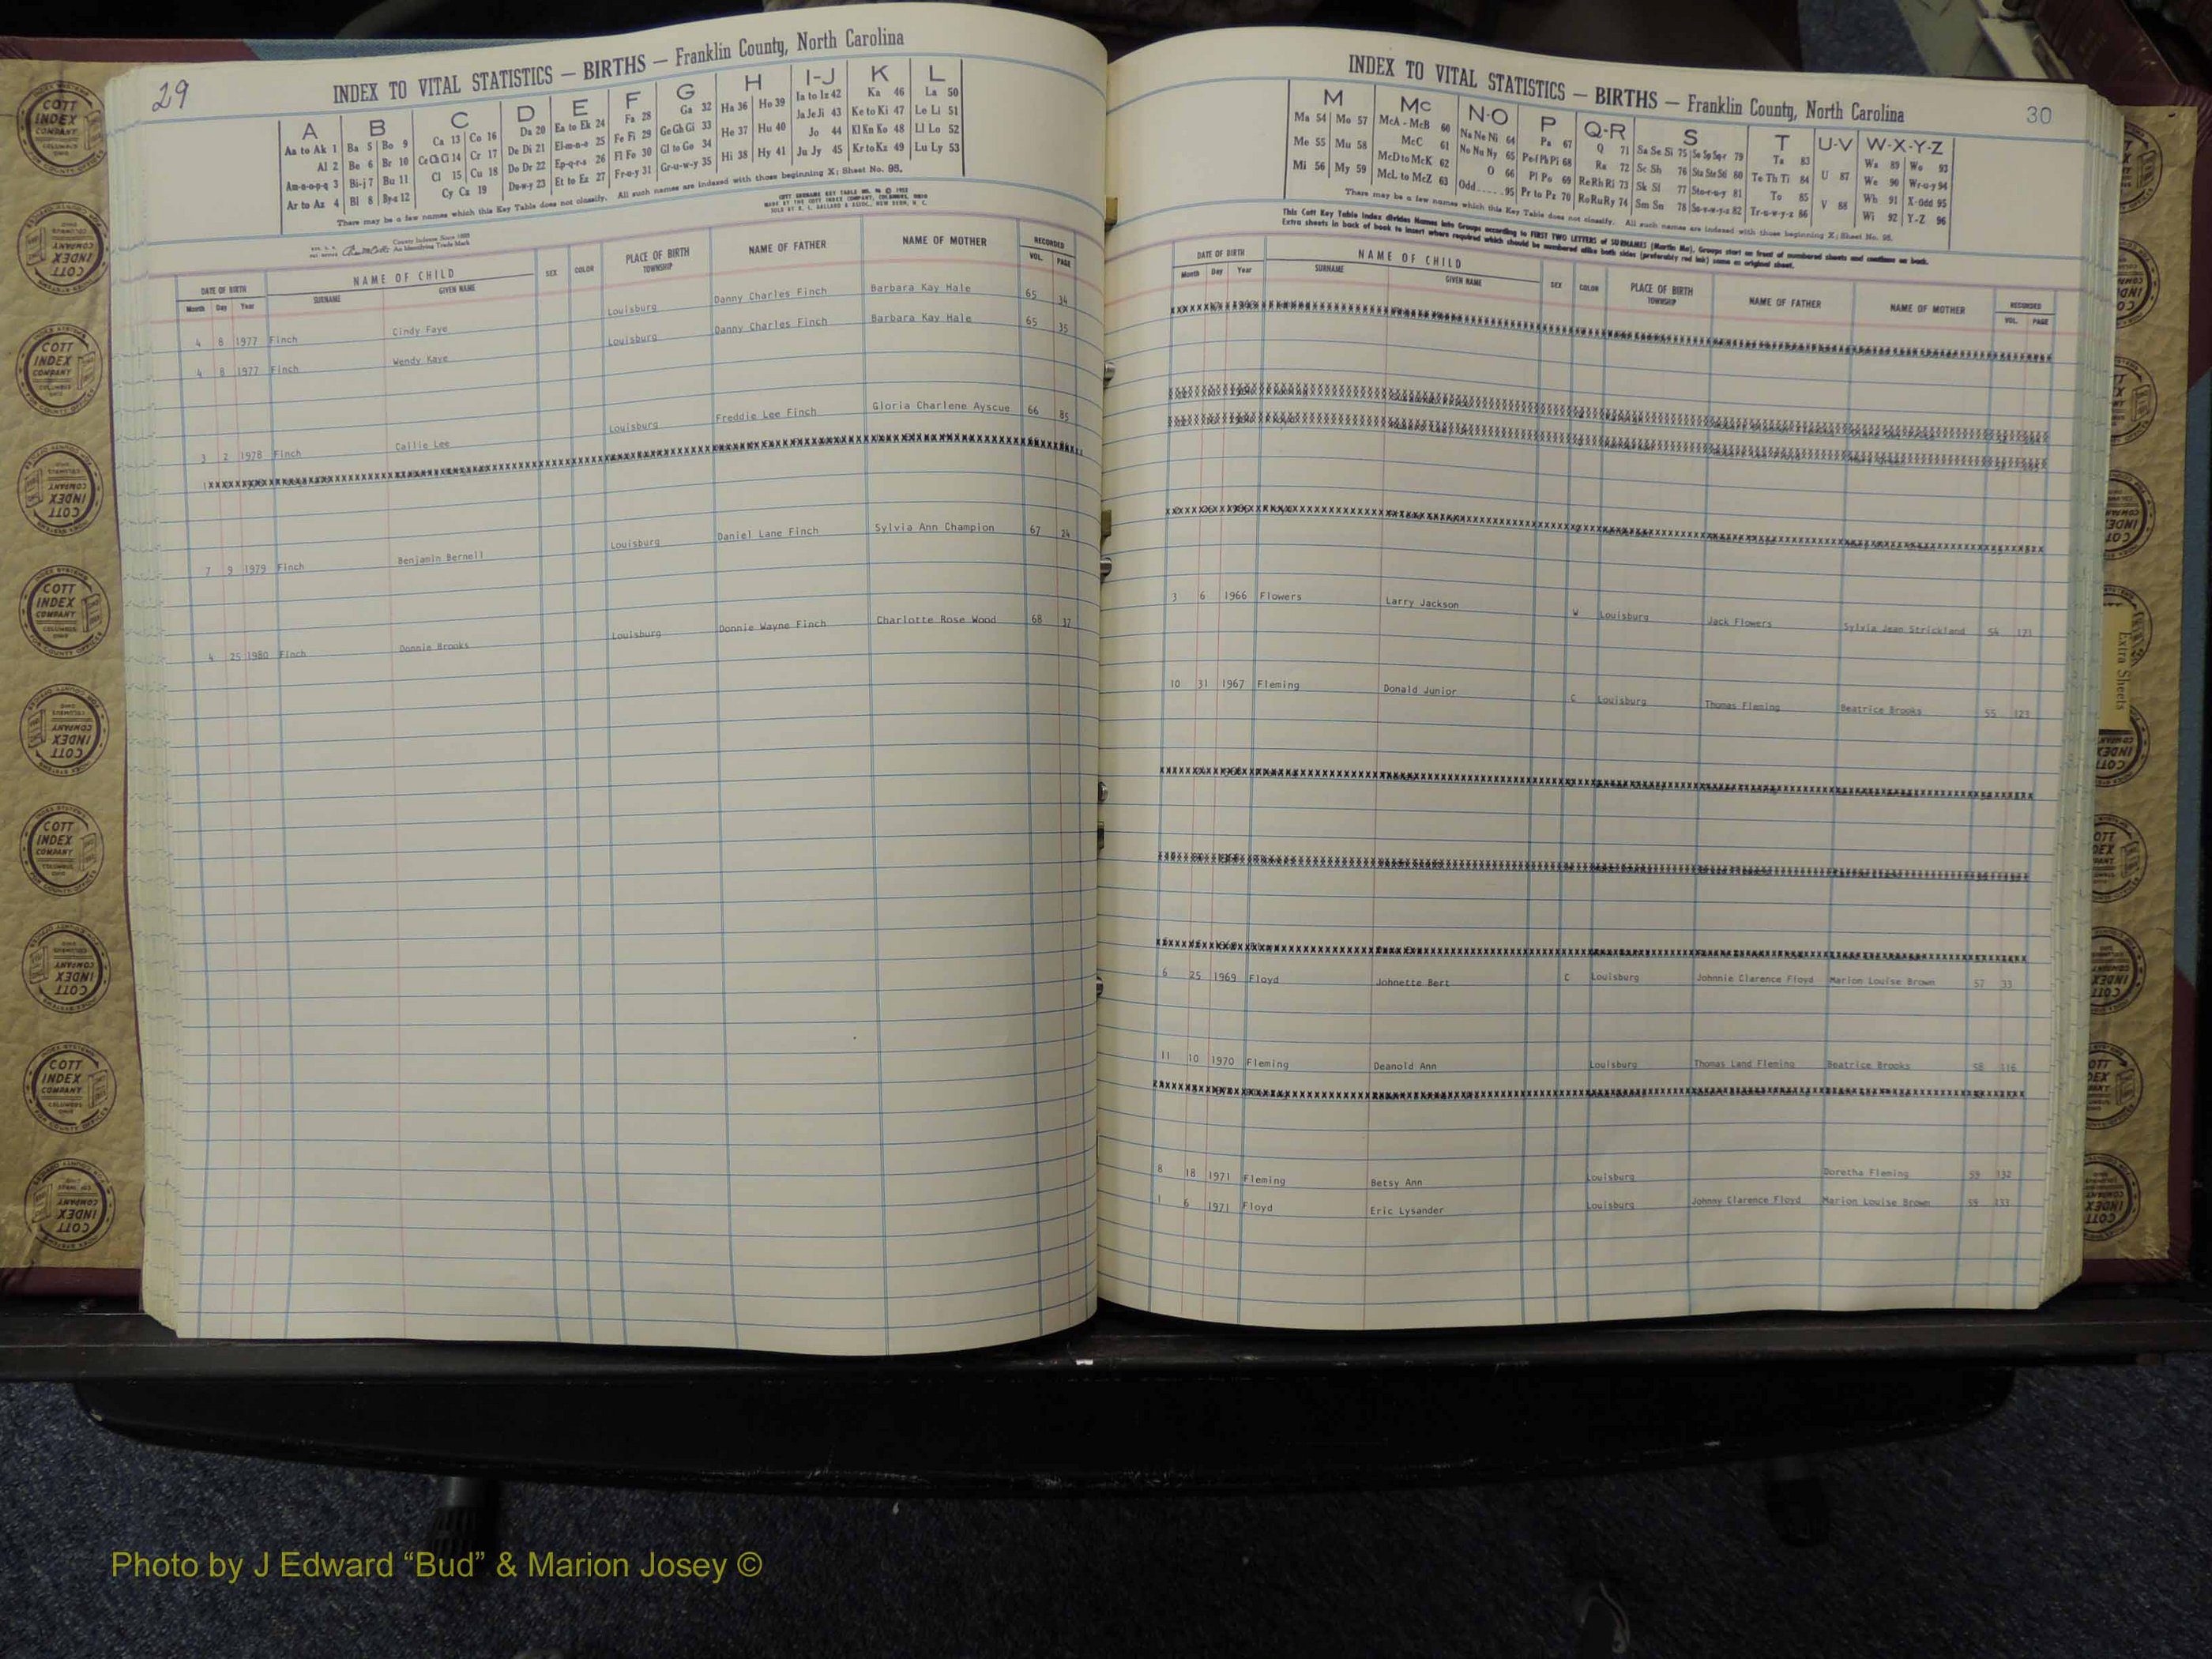 29
INDEX TO VITAL STATISTICS — BIRTHS — Franklin County, North Carolina
A B C D E F G H I-J K L
Aa to Ak 1 Ba 5 Bo 9 Ca 13 Co 16 Da 20 Ea to Ek 24 Fa 28 Ga 32 Ha 36 Ho 39 Ia to Iz 42 Ka 46 La 50
Al 2 Be 6 Br 10 Ce Ch Ci 14 Cr 17 De Di 21 El-m-n-o 25 Fe Fi 29 Ge Gh Gi 33 He 37 Hu 40 Ja Je Ji 43 Ke to Ki 47 Le Li 51
Am-n-o-p-q 3 Bi-j 7 Bu 11 Cl 15 Cu 18 Do Dr 22 Ep-q-r-s 26 Fl Fo 30 Gl to Go 34 Hi 38 Hy 41 Jo 44 Kl Kn Ko 48 Ll Lo 52
Ar to Az 4 Bl 8 By-z 12 Cy Cz 19 Du-w-y 23 Et to Ez 27 Fr-u-y 31 Gr-u-w-y 35 Ju Jy 45 Kr to Kz 49 Lu Ly 53
There may be a few names which this Key Table does not classify. All such names are indexed with those beginning X; Sheet No. 95.
COTT SURNAME KEY TABLE
MADE BY THE COTT INDEX COMPANY, COLUMBUS, OHIO
SOLD BY
County Indexes Since 1888
An Identifying Trade Mark
DATE OF BIRTH NAME OF CHILD SEX COLOR PLACE OF BIRTH NAME OF FATHER NAME OF MOTHER RECORDED
Month Day Year SURNAME GIVEN NAME TOWNSHIP VOL. PAGE
4 8 1977 Finch Cindy Faye Louisburg Danny Charles Finch Barbara Kay Hale 65 34
4 8 1977 Finch Wendy Kaye Louisburg Danny Charles Finch Barbara Kay Hale 65 35
3 2 1978 Finch Callie Lee Louisburg Freddie Lee Finch Gloria Charlene Ayscue 66 85
7 9 1979 Finch Benjamin Bernell Louisburg Daniel Lane Finch Sylvia Ann Champion 67 24
4 25 1980 Finch Donnie Brooks Louisburg Donnie Wayne Finch Charlotte Rose Wood 68 37
INDEX TO VITAL STATISTICS — BIRTHS — Franklin County, North Carolina 30
M Mc N-O P Q-R S T U-V W-X-Y-Z
Ma 54 Mo 57 McA - McB 60 Na Ne Ni 64 Pa 67 Q 71 Sa Se Si 75 So Sp Sq-r 79 Ta 83 U 87 Wa 89 Wo 93
Me 55 Mu 58 McC 61 No Nu Ny 65 Pe-f Ph Pi 68 Ra 72 Sc Sh 76 Sta Ste Sti 80 Te Th Ti 84 V 88 We 90 Wr-u-y 94
Mi 56 My 59 McD to McK 62 O 66 Pl Po 69 Re Rh Ri 73 Sk Sl 77 Sto-r-u-y 81 To 85 Wh 91 X-Odd 95
McL to McZ 63 Odd.....95 Pr to Pz 70 Ro Ru Ry 74 Sm Sn 78 Su-v-w-y-z 82 Tr-u-w-y-z 86 Wi 92 Y-Z 96
There may be a few names which this Key Table does not classify. All such names are indexed with those beginning X; Sheet No. 95.
This Cott Key Table Index divides Names into Groups according to FIRST TWO LETTERS of SURNAMES (Martin Ma). Groups start on front of numbered sheets and continue on back.
Extra sheets in back of book to insert where required which should be numbered alike both sides (preferably red ink) same as original sheet.
DATE OF BIRTH NAME OF CHILD SEX COLOR PLACE OF BIRTH NAME OF FATHER NAME OF MOTHER RECORDED
Month Day Year SURNAME GIVEN NAME TOWNSHIP VOL. PAGE
3 6 1966 Flowers Larry Jackson W Louisburg Jack Flowers Sylvia Jean Strickland 54 171
10 31 1967 Fleming Donald Junior C Louisburg Thomas Fleming Beatrice Brooks 55 123
6 25 1969 Floyd Johnette Bert C Louisburg Johnnie Clarence Floyd Marion Louise Brown 57 33
11 10 1970 Fleming Deanold Ann Louisburg Thomas Land Fleming Beatrice Brooks 58 116
8 18 1971 Fleming Betsy Ann Louisburg Doretha Fleming 59 132
1 6 1971 Floyd Eric Lysander Louisburg Johnny Clarence Floyd Marion Louise Brown 59 133
Extra Sheets
COTT INDEX COMPANY
Photo by J Edward “Bud” & Marion Josey ©